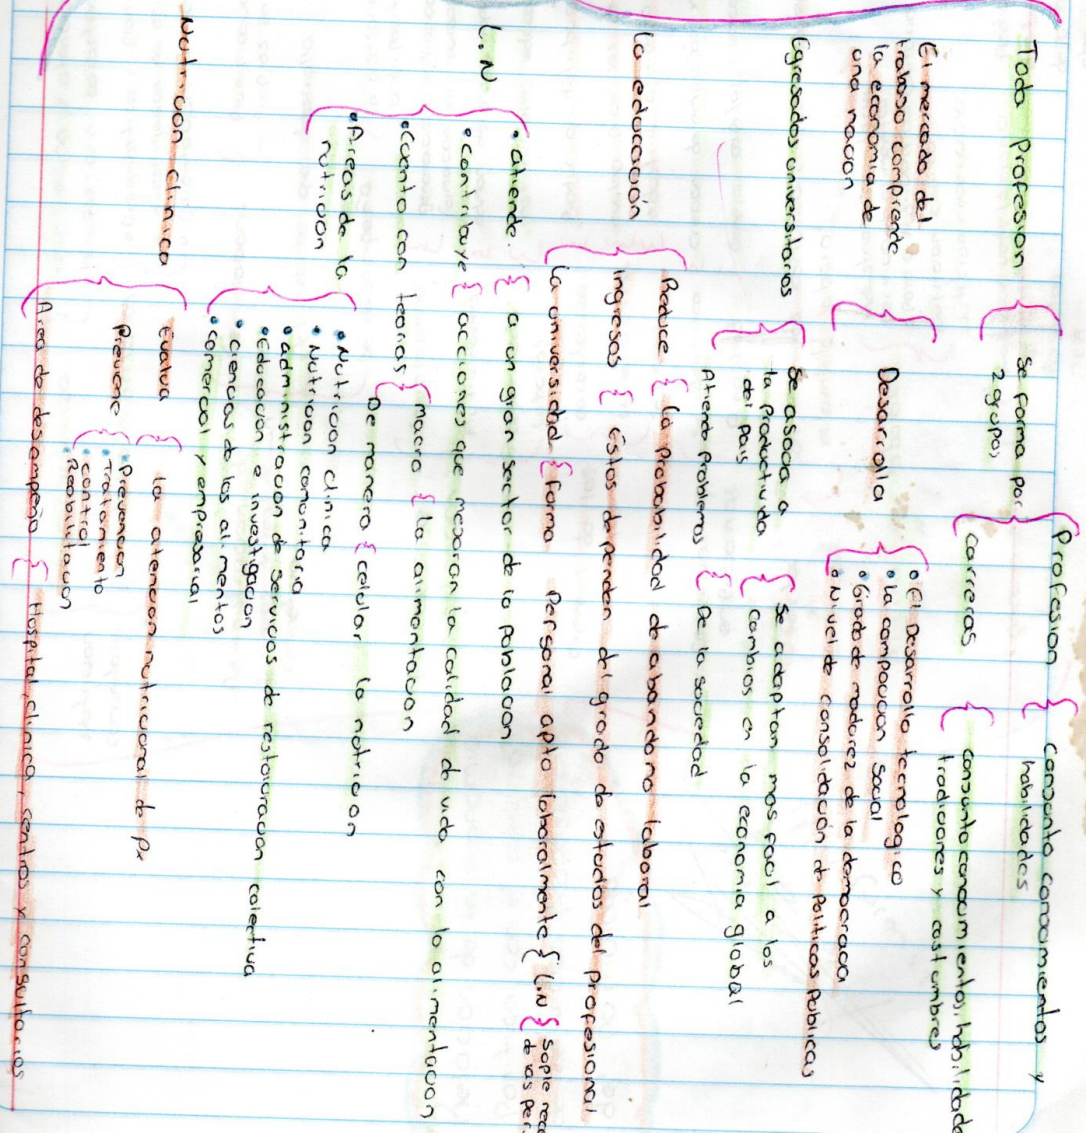 Toda profesion
Se forma por
2 grupos
Profesion
conjunto conocimientos y
habilidades
carreras
conjunto conocimientos, habilidade
tradiciones y costumbres
El mercado del
trabajo comprende
la economia de
una nacion
Desarrolla
• El Desarrollo tecnologico
• La composicion social
• Grado de madurez de la democracia
• Nivel de consolidación de Politicas Publicas
Egresados universitarios
Se asocia a
la productividad
del pais
se adaptan mas facil a los
cambios en la economia global
Atiende problemas
De la sociedad
La educación
Reduce
La probabilidad de abandono laboral
Ingresos
Estos dependen del grado de estudios del profesional
La universidad
forma
Personal apto laboralmente
LN
L.N
• atiende
a un gran sector de la poblacion
• contribuye
acciones que mejoran la calidad de vida con la alimentacion
• Cuenta con teorias
macro
la alimentacion
De manera
celular la nutricion
• Areas de la
nutricion
• Nutricion clinica
• Nutricion comunitaria
• administracion de servicios de restauracion colectiva
• Educacion e investigacion
• ciencias de los alimentos
• comercial y empresarial
Nutricion clinica
Evalua
la atencion nutricional de Px
Previene
• Prevencion
• Tratamiento
• control
• Reabilitacion
Area de desempeño
Hospital, clinica, centros y consultorios